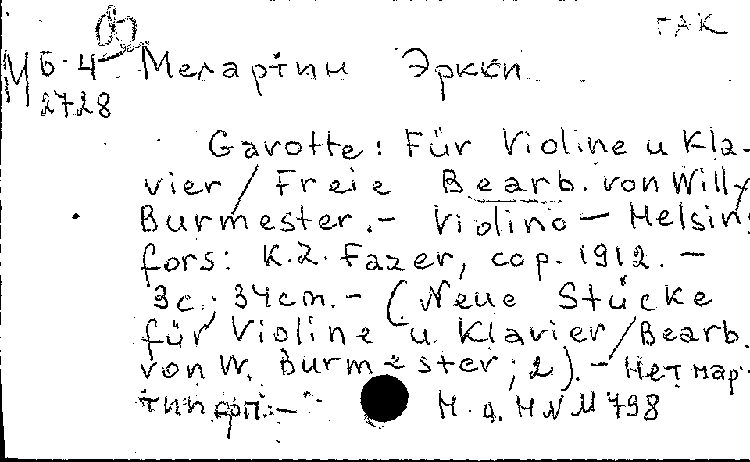 ГАК
М Б-4 Мелартин Эркки
2728
Gavotte: Für Violine u Kla-
vier / Freie Bearb. von Willy
Burmester. – Violino – Helsing
fors: K. Z. Fazer, cop. 1912. –
3с.; 34cm. – (Neue Stücke
für Violine u. Klavier / Bearb.
von W. Burmester; 2). – Нет пар-
тии фп. –
Н. д. Н N M 798